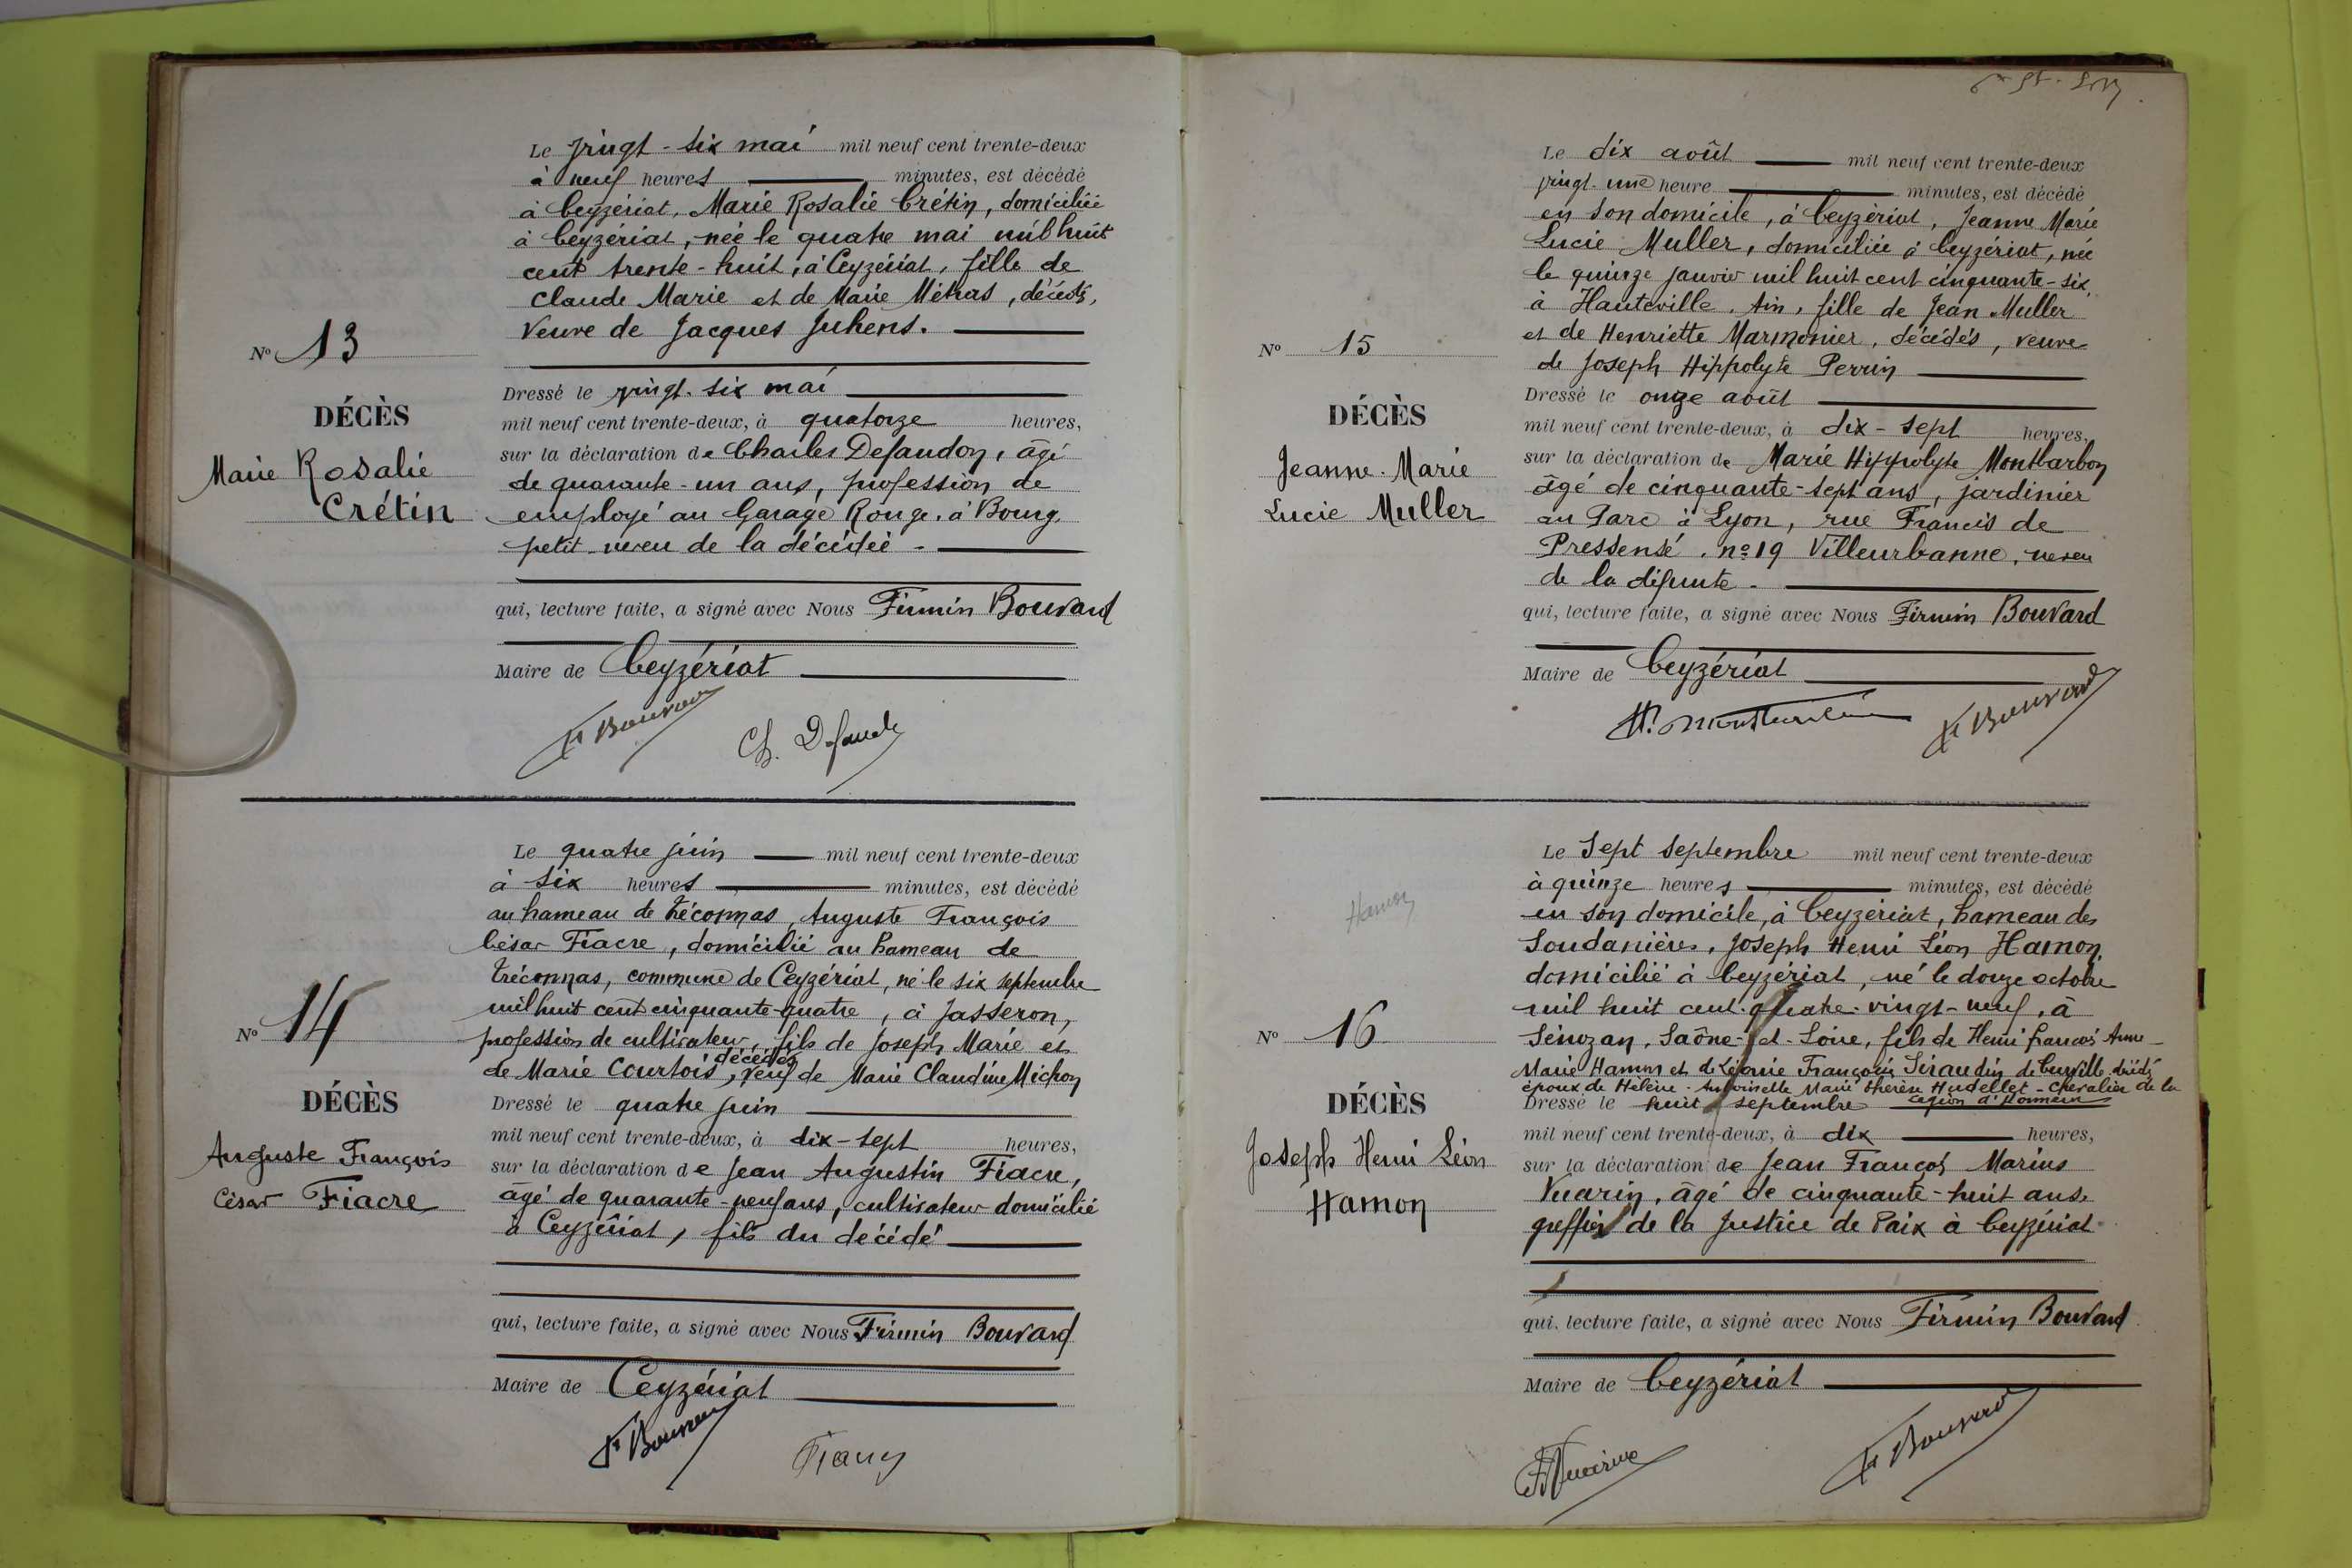 Le vingt-six mai mil neuf cent trente-deux
à neuf heures minutes, est décédé
à Ceyzériat, Marie Rosalie Crétin, domiciliée
à Ceyzériat, née le quatre mai mil huit
cent trente-huit, à Ceyzériat, fille de
Claude Marie et de Marie Métras, décédés,
Veuve de Jacques Juhens.
N° 13
DÉCÈS
Marie Rosalie
Crétin
Dressé le vingt-six mai
mil neuf cent trente-deux, à quatorze heures,
sur la déclaration de Charles Defaudon, âgé
de quarante-un ans, profession de
employé au Garage Rouge, à Bourg,
petit-neveu de la décédée -
qui, lecture faite, a signé avec Nous Firmin Bouvard
Maire de Ceyzériat
F Bouvard
Ch. Defaudo
Le quatre juin mil neuf cent trente-deux
à six heures minutes, est décédé
au hameau de Tréconnas, Auguste François
César Fiacre, domicilié au hameau de
Tréconnas, commune de Ceyzériat, né le six septembre
mil huit cent cinquante-quatre, à Jasseron,
profession de cultivateur, fils de Joseph Marie et
de Marie Courtois, décédés, veuf de Marie Claudine Michon
N° 14
DÉCÈS
Auguste François
César Fiacre
Dressé le quatre juin
mil neuf cent trente-deux, à dix-sept heures,
sur la déclaration de Jean Augustin Fiacre,
âgé de quarante-neuf ans, cultivateur domicilié
à Ceyzériat, fils du décédé
qui, lecture faite, a signé avec Nous Firmin Bouvard
Maire de Ceyzériat
F Bouvard
Le dix août mil neuf cent trente-deux
vingt-une heure minutes, est décédé
en son domicile, à Ceyzériat, Jeanne Marie
Lucie Muller, domiciliée à Ceyzériat, née
le quinze janvier mil huit cent cinquante-six,
à Hauteville, Ain, fille de Jean Muller
et de Henriette Marmonier, décédés, veuve
de Joseph Hippolyte Perrin
N° 15
DÉCÈS
Jeanne-Marie
Lucie Muller
Dressé le onze août
mil neuf cent trente-deux, à dix-sept heures,
sur la déclaration de Marie Hippolyte Montbarbon
âgé de cinquante-sept ans, jardinier
au Parc à Lyon, rue Francis de
Pressensé, n° 19 Villeurbanne, neveu
de la défunte -
qui, lecture faite, a signé avec Nous Firmin Bouvard
Maire de Ceyzériat
F Bouvard
Hamon
Le Sept Septembre mil neuf cent trente-deux
à quinze heures minutes, est décédé
en son domicile, à Ceyzériat, hameau des
Soudanières, Joseph Henri Léon Hamon,
domicilié à Ceyzériat, né le douze octobre
mil huit cent quatre-vingt-neuf, à
Sénozan, Saône-et-Loire, fils de Henri François Anne-
Marie Hamon et de Léonie Françoise Siraudin de décédés
époux de Hélène-Antoinette Marie Thérèse Hudellet - Chevalier de la
Légion d'Honneur
N° 16
DÉCÈS
Joseph Henri Léon
Hamon
Dressé le huit septembre
mil neuf cent trente-deux, à dix heures,
sur la déclaration de Jean François Marius
Vuarin, âgé de cinquante-huit ans,
greffier de la Justice de Paix à Ceyzériat
qui, lecture faite, a signé avec Nous Firmin Bouvard
Maire de Ceyzériat
F Bouvard